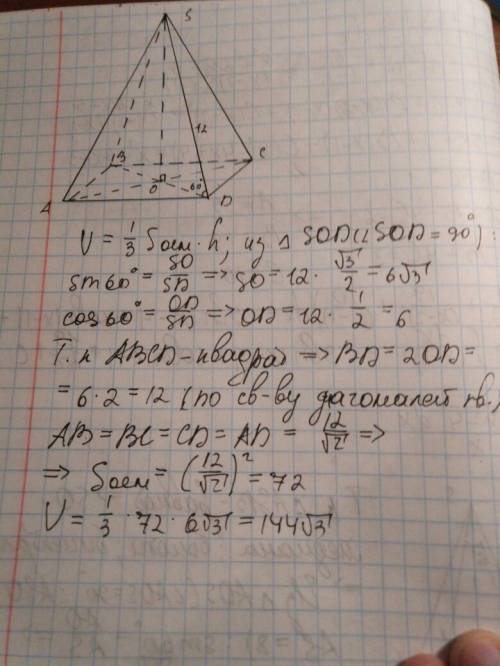 S
12
B
C
O
60°
A
D
V = 1/3 Sосн · h; из △ SOD (∠SOD = 90°):
sin60° = SO/SD => SO = 12 · √3/2 = 6√3
cos60° = OD/SD => OD = 12 · 1/2 = 6
Т.к ABCD - квадрат => BD = 2OD =
= 6·2 = 12 (по св-ву диагоналей кв.)
AB = BC = CD = AD = 12/√2 =>
=> Sосн = (12/√2)² = 72
V = 1/3 · 72 · 6√3 = 144√3